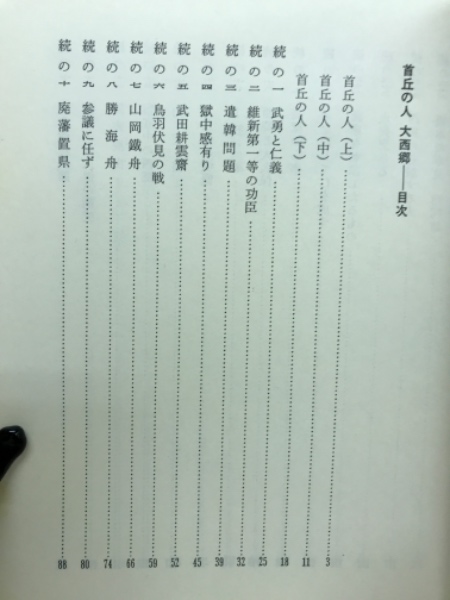 首丘の人 大西郷――目次
首丘の人（上）……3
首丘の人（中）……11
首丘の人（下）……18
続の一 武勇と仁義……25
続の二 維新第一等の功臣……32
続の三 遣韓問題……39
続の四 獄中感有り……45
続の五 武田耕雲齋……52
続の六 鳥羽伏見の戦……59
続の七 山岡鐵舟……66
続の八 勝海舟……74
続の九 参議に任ず……80
続の十 廃藩置県……88